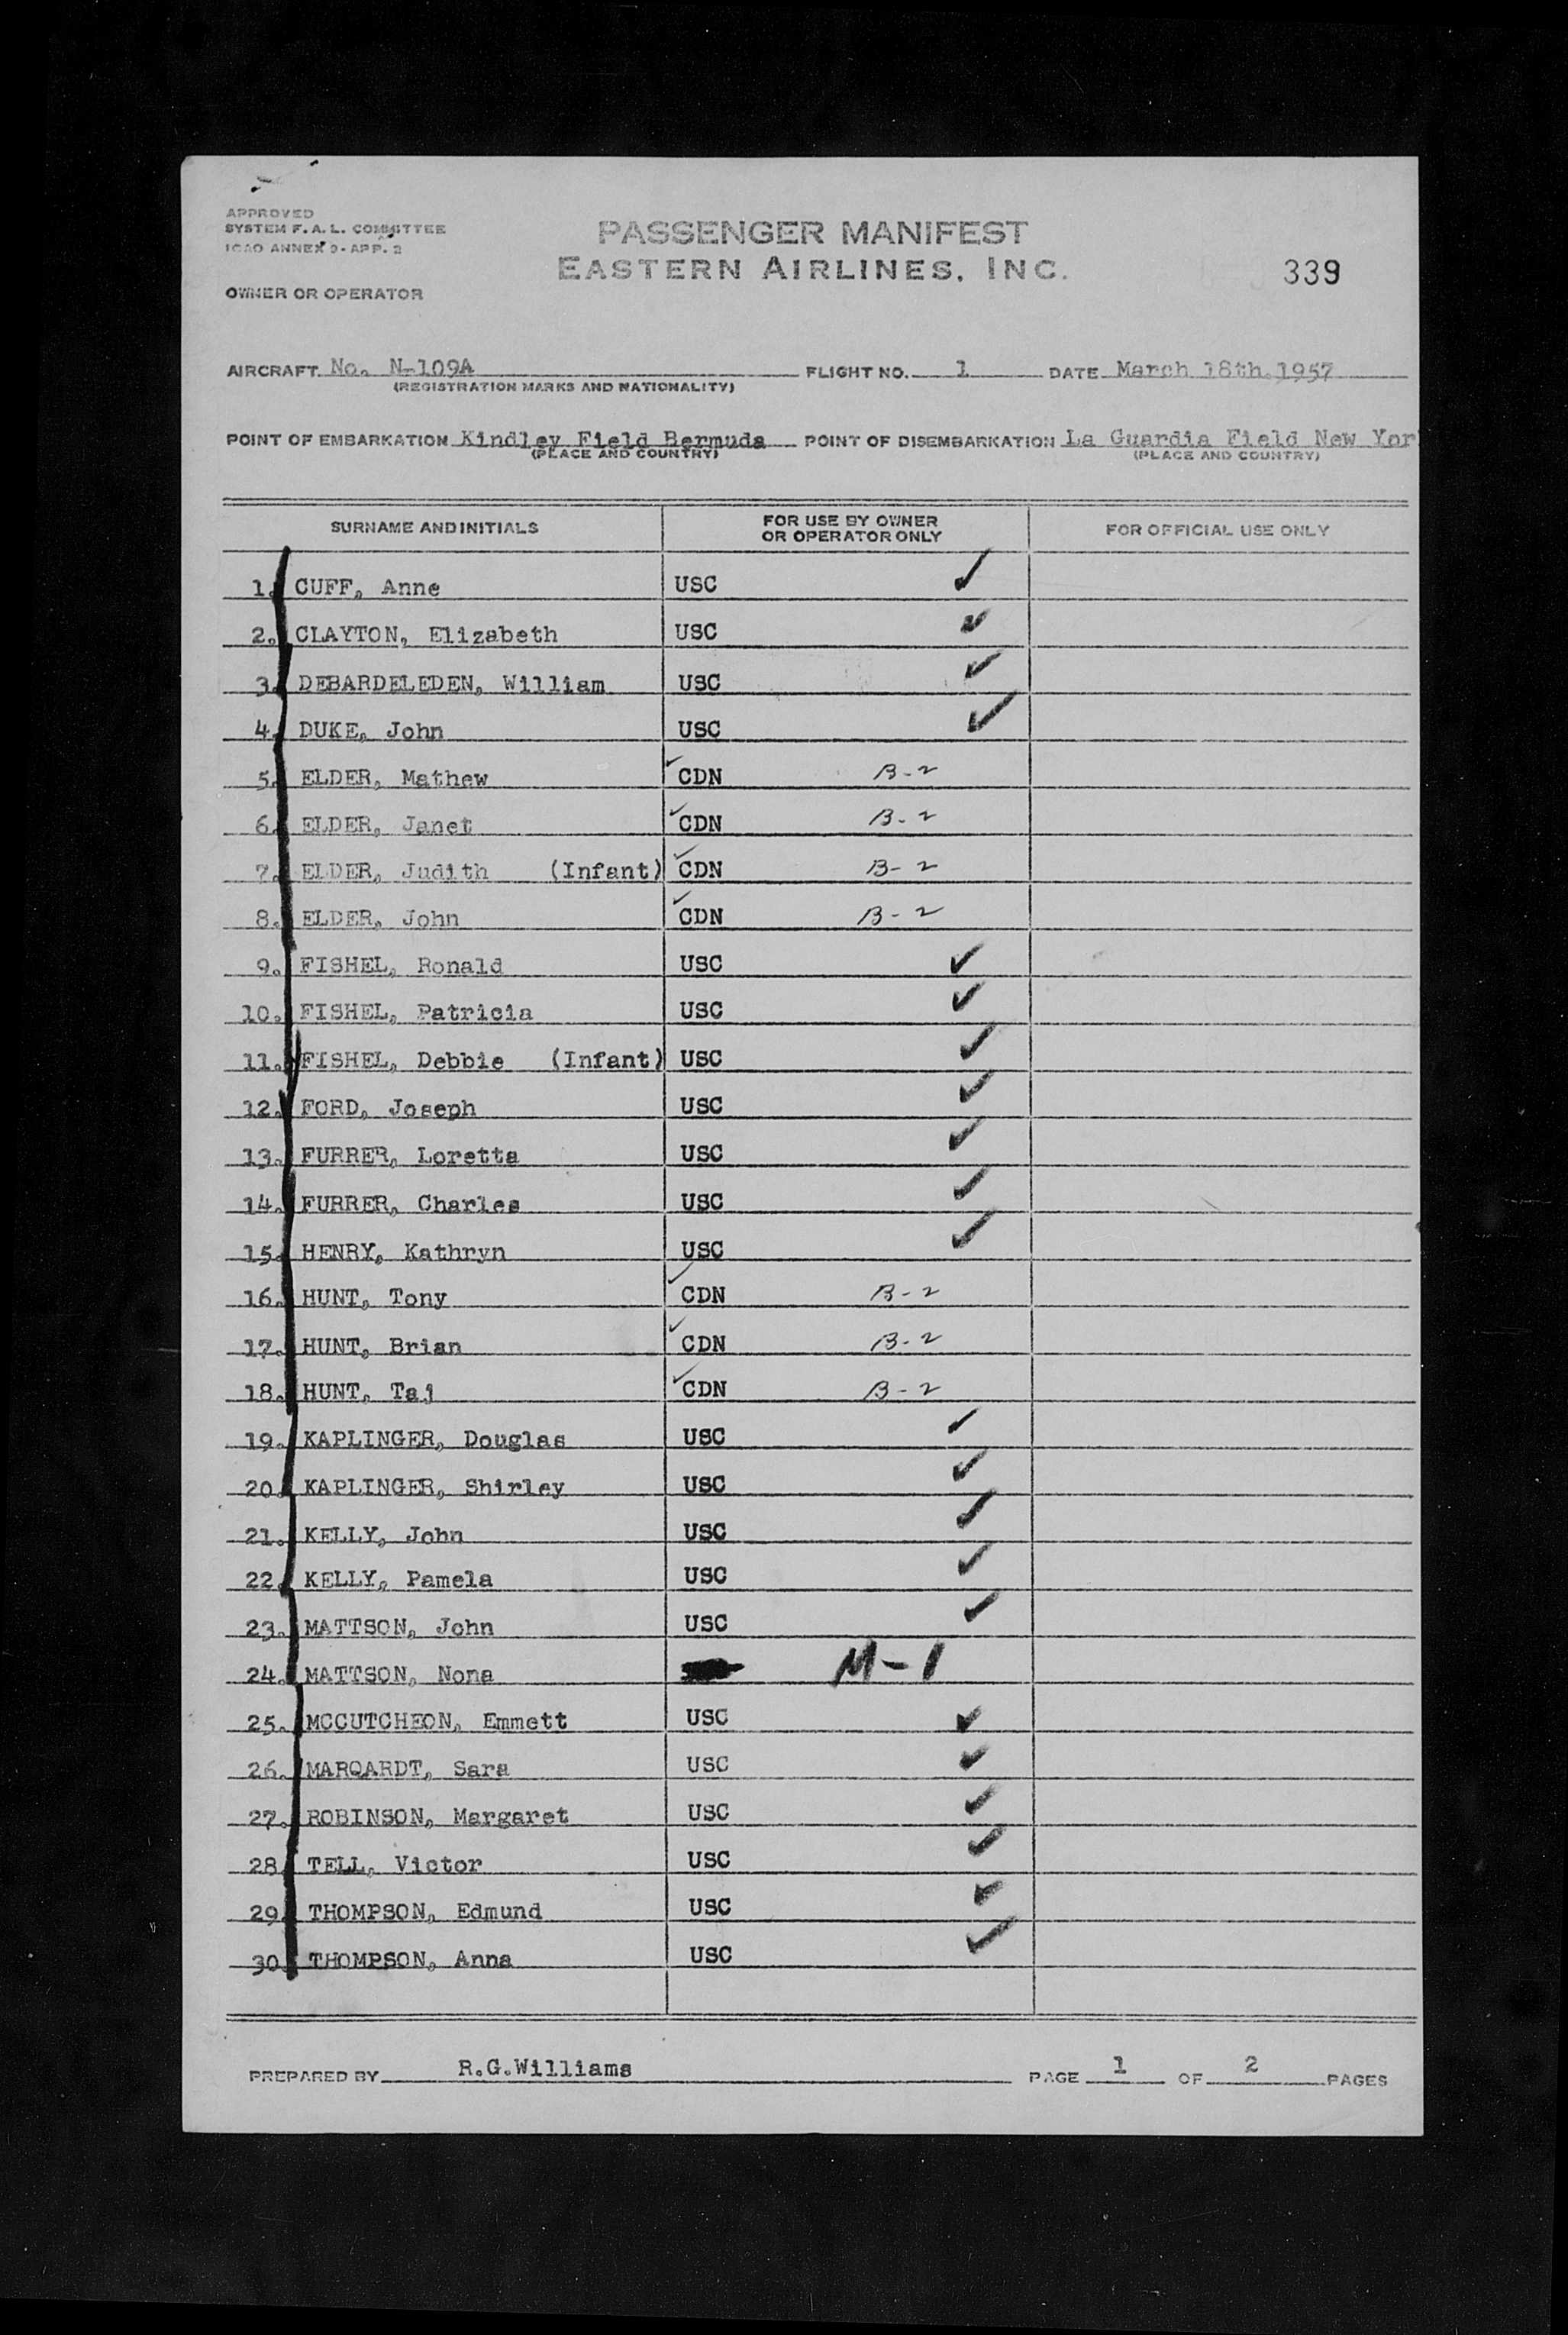 APPROVED
SYSTEM F. A. L. COMMITTEE
ICAO ANNEX 9-APP. 2
OWNER OR OPERATOR
PASSENGER MANIFEST
EASTERN AIRLINES, INC.
339
AIRCRAFT No. N-109A FLIGHT NO. 1 DATE March 18th.1957
(REGISTRATION MARKS AND NATIONALITY)
POINT OF EMBARKATION Kindley Field Bermuda POINT OF DISEMBARKATION La Guardia Field New Yor
(PLACE AND COUNTRY) (PLACE AND COUNTRY)
SURNAME AND INITIALS FOR USE BY OWNER OR OPERATOR ONLY FOR OFFICIAL USE ONLY
1. CUFF, Anne USC ✓
2. CLAYTON, Elizabeth USC ✓
3. DEBARDELEDEN, William USC ✓
4. DUKE, John USC ✓
5. ELDER, Mathew ✓ CDN B-2
6. ELDER, Janet ✓ CDN B-2
7. ELDER, Judith (Infant) ✓ CDN B-2
8. ELDER, John ✓ CDN B-2
9. FISHEL, Ronald USC ✓
10. FISHEL, Patricia USC ✓
11. FISHEL, Debbie (Infant) USC ✓
12. FORD, Joseph USC ✓
13. FURRER, Loretta USC ✓
14. FURRER, Charles USC ✓
15. HENRY, Kathryn USC ✓
16. HUNT, Tony ✓ CDN B-2
17. HUNT, Brian ✓ CDN B-2
18. HUNT, Taj ✓ CDN B-2
19. KAPLINGER, Douglas USC ✓
20. KAPLINGER, Shirley USC ✓
21. KELLY, John USC ✓
22. KELLY, Pamela USC ✓
23. MATTSON, John USC ✓
24. MATTSON, Nona M-1
25. MCCUTCHEON, Emmett USC ✓
26. MARQARDT, Sara USC ✓
27. ROBINSON, Margaret USC ✓
28. TELL, Victor USC ✓
29. THOMPSON, Edmund USC ✓
30. THOMPSON, Anna USC ✓
PREPARED BY R.G.Williams PAGE 1 OF 2 PAGES